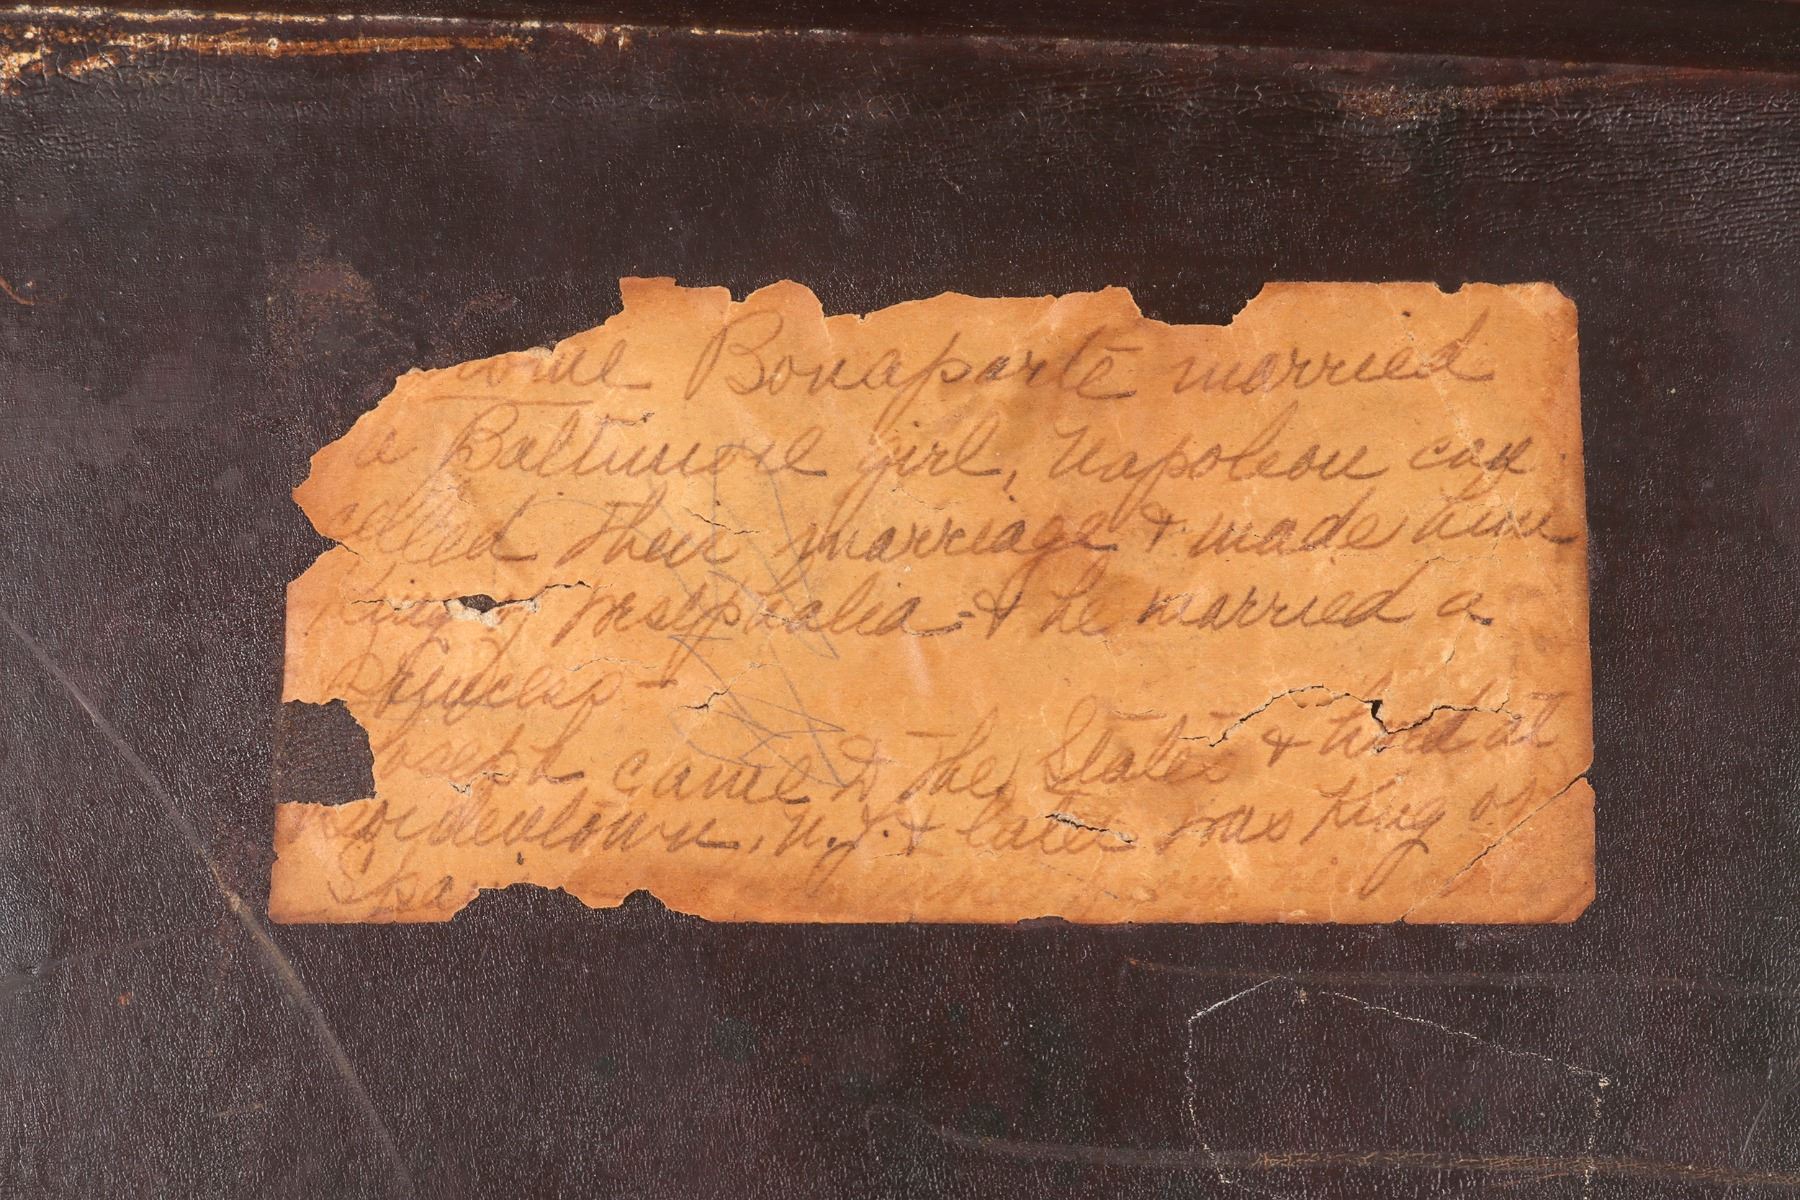 ome Bonaparte married
a Baltimore girl, Napoleon can
celled their marriage & made him
King of Westphalia - & he married a
Princess -
Joseph came to the States & lived at
Bordentown, N.J. & later was King of
Spain